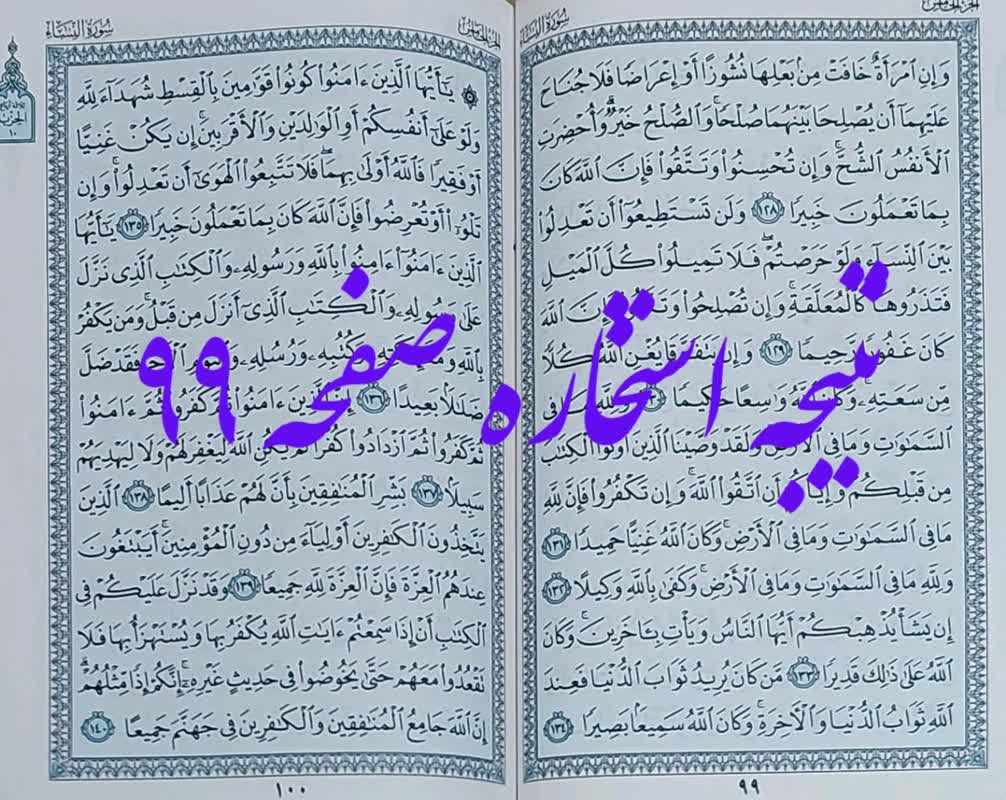 سُورَةُ النِّسَاءِ
وَإِنِ ٱمۡرَأَةٌ خَافَتۡ مِنۢ بَعۡلِهَا نُشُوزًا أَوۡ إِعۡرَاضٗا فَلَا جُنَاحَ
عَلَيۡهِمَآ أَن يُصۡلِحَا بَيۡنَهُمَا صُلۡحٗاۚ وَٱلصُّلۡحُ خَيۡرٞۗ وَأُحۡضِرَتِ
ٱلۡأَنفُسُ ٱلشُّحَّۚ وَإِن تُحۡسِنُواْ وَتَتَّقُواْ فَإِنَّ ٱللَّهَ كَانَ
بِمَا تَعۡمَلُونَ خَبِيرٗا ١٢٨ وَلَن تَسۡتَطِيعُوٓاْ أَن تَعۡدِلُواْ
بَيۡنَ ٱلنِّسَآءِ وَلَوۡ حَرَصۡتُمۡۖ فَلَا تَمِيلُواْ كُلَّ ٱلۡمَيۡلِ
فَتَذَرُوهَا كَٱلۡمُعَلَّقَةِۚ وَإِن تُصۡلِحُواْ وَتَتَّقُواْ فَإِنَّ ٱللَّهَ
كَانَ غَفُورٗا رَّحِيمٗا ١٢٩ وَإِن يَتَفَرَّقَا يُغۡنِ ٱللَّهُ كُلّٗا
مِّن سَعَتِهِۦۚ وَكَانَ ٱللَّهُ وَٰسِعًا حَكِيمٗا ١٣٠ وَلِلَّهِ مَا فِي
ٱلسَّمَٰوَٰتِ وَمَا فِي ٱلۡأَرۡضِۗ وَلَقَدۡ وَصَّيۡنَا ٱلَّذِينَ أُوتُواْ ٱلۡكِتَٰبَ
مِن قَبۡلِكُمۡ وَإِيَّاكُمۡ أَنِ ٱتَّقُواْ ٱللَّهَۚ وَإِن تَكۡفُرُواْ فَإِنَّ لِلَّهِ
مَا فِي ٱلسَّمَٰوَٰتِ وَمَا فِي ٱلۡأَرۡضِۚ وَكَانَ ٱللَّهُ غَنِيًّا حَمِيدٗا ١٣١
وَلِلَّهِ مَا فِي ٱلسَّمَٰوَٰتِ وَمَا فِي ٱلۡأَرۡضِۚ وَكَفَىٰ بِٱللَّهِ وَكِيلًا ١٣٢
إِن يَشَأۡ يُذۡهِبۡكُمۡ أَيُّهَا ٱلنَّاسُ وَيَأۡتِ بِـَٔاخَرِينَۚ وَكَانَ
ٱللَّهُ عَلَىٰ ذَٰلِكَ قَدِيرٗا ١٣٣ مَّن كَانَ يُرِيدُ ثَوَابَ ٱلدُّنۡيَا فَعِندَ
ٱللَّهِ ثَوَابُ ٱلدُّنۡيَا وَٱلۡأٓخِرَةِۚ وَكَانَ ٱللَّهُ سَمِيعَۢا بَصِيرٗا ١٣٤
٩٩
الجزء الخامس
سُورَةُ النِّسَاءِ
يَٰٓأَيُّهَا ٱلَّذِينَ ءَامَنُواْ كُونُواْ قَوَّٰمِينَ بِٱلۡقِسۡطِ شُهَدَآءَ لِلَّهِ
وَلَوۡ عَلَىٰٓ أَنفُسِكُمۡ أَوِ ٱلۡوَٰلِدَيۡنِ وَٱلۡأَقۡرَبِينَۚ إِن يَكُنۡ غَنِيًّا
أَوۡ فَقِيرٗا فَٱللَّهُ أَوۡلَىٰ بِهِمَاۖ فَلَا تَتَّبِعُواْ ٱلۡهَوَىٰٓ أَن تَعۡدِلُواْۚ وَإِن
تَلۡوُۥٓاْ أَوۡ تُعۡرِضُواْ فَإِنَّ ٱللَّهَ كَانَ بِمَا تَعۡمَلُونَ خَبِيرٗا ١٣٥ يَٰٓأَيُّهَا
ٱلَّذِينَ ءَامَنُوٓاْ ءَامِنُواْ بِٱللَّهِ وَرَسُولِهِۦ وَٱلۡكِتَٰبِ ٱلَّذِي نَزَّلَ
عَلَىٰ رَسُولِهِۦ وَٱلۡكِتَٰبِ ٱلَّذِيٓ أَنزَلَ مِن قَبۡلُۚ وَمَن يَكۡفُرۡ
بِٱللَّهِ وَمَلَٰٓئِكَتِهِۦ وَكُتُبِهِۦ وَرُسُلِهِۦ وَٱلۡيَوۡمِ ٱلۡأٓخِرِ فَقَدۡ ضَلَّ
ضَلَٰلَۢا بَعِيدًا ١٣٦ إِنَّ ٱلَّذِينَ ءَامَنُواْ ثُمَّ كَفَرُواْ ثُمَّ ءَامَنُواْ
ثُمَّ كَفَرُواْ ثُمَّ ٱزۡدَادُواْ كُفۡرٗا لَّمۡ يَكُنِ ٱللَّهُ لِيَغۡفِرَ لَهُمۡ وَلَا لِيَهۡدِيَهُمۡ
سَبِيلَۢا ١٣٧ بَشِّرِ ٱلۡمُنَٰفِقِينَ بِأَنَّ لَهُمۡ عَذَابًا أَلِيمًا ١٣٨ ٱلَّذِينَ
يَتَّخِذُونَ ٱلۡكَٰفِرِينَ أَوۡلِيَآءَ مِن دُونِ ٱلۡمُؤۡمِنِينَۚ أَيَبۡتَغُونَ
عِندَهُمُ ٱلۡعِزَّةَ فَإِنَّ ٱلۡعِزَّةَ لِلَّهِ جَمِيعٗا ١٣٩ وَقَدۡ نَزَّلَ عَلَيۡكُمۡ فِي
ٱلۡكِتَٰبِ أَنۡ إِذَا سَمِعۡتُمۡ ءَايَٰتِ ٱللَّهِ يُكۡفَرُ بِهَا وَيُسۡتَهۡزَأُ بِهَا فَلَا
تَقۡعُدُواْ مَعَهُمۡ حَتَّىٰ يَخُوضُواْ فِي حَدِيثٍ غَيۡرِهِۦٓ إِنَّكُمۡ إِذٗا مِّثۡلُهُمۡۗ
إِنَّ ٱللَّهَ جَامِعُ ٱلۡمُنَٰفِقِينَ وَٱلۡكَٰفِرِينَ فِي جَهَنَّمَ جَمِيعًا ١٤٠
١٠٠
نتیجه استخاره صفحه ۹۹